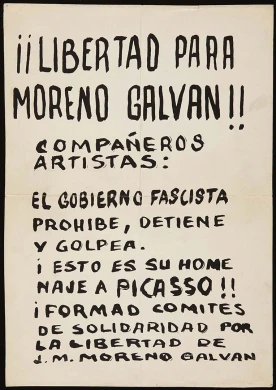 ¡¡LIBERTAD PARA
MORENO GALVAN!!
COMPAÑEROS
ARTISTAS:
EL GOBIERNO FASCISTA
PROHIBE, DETIENE
Y GOLPEA.
¡ESTO ES SU HOME
NAJE A PICASSO!!
¡FORMAD COMITES
DE SOLIDARIDAD POR
LA LIBERTAD DE
J.M. MORENO GALVAN